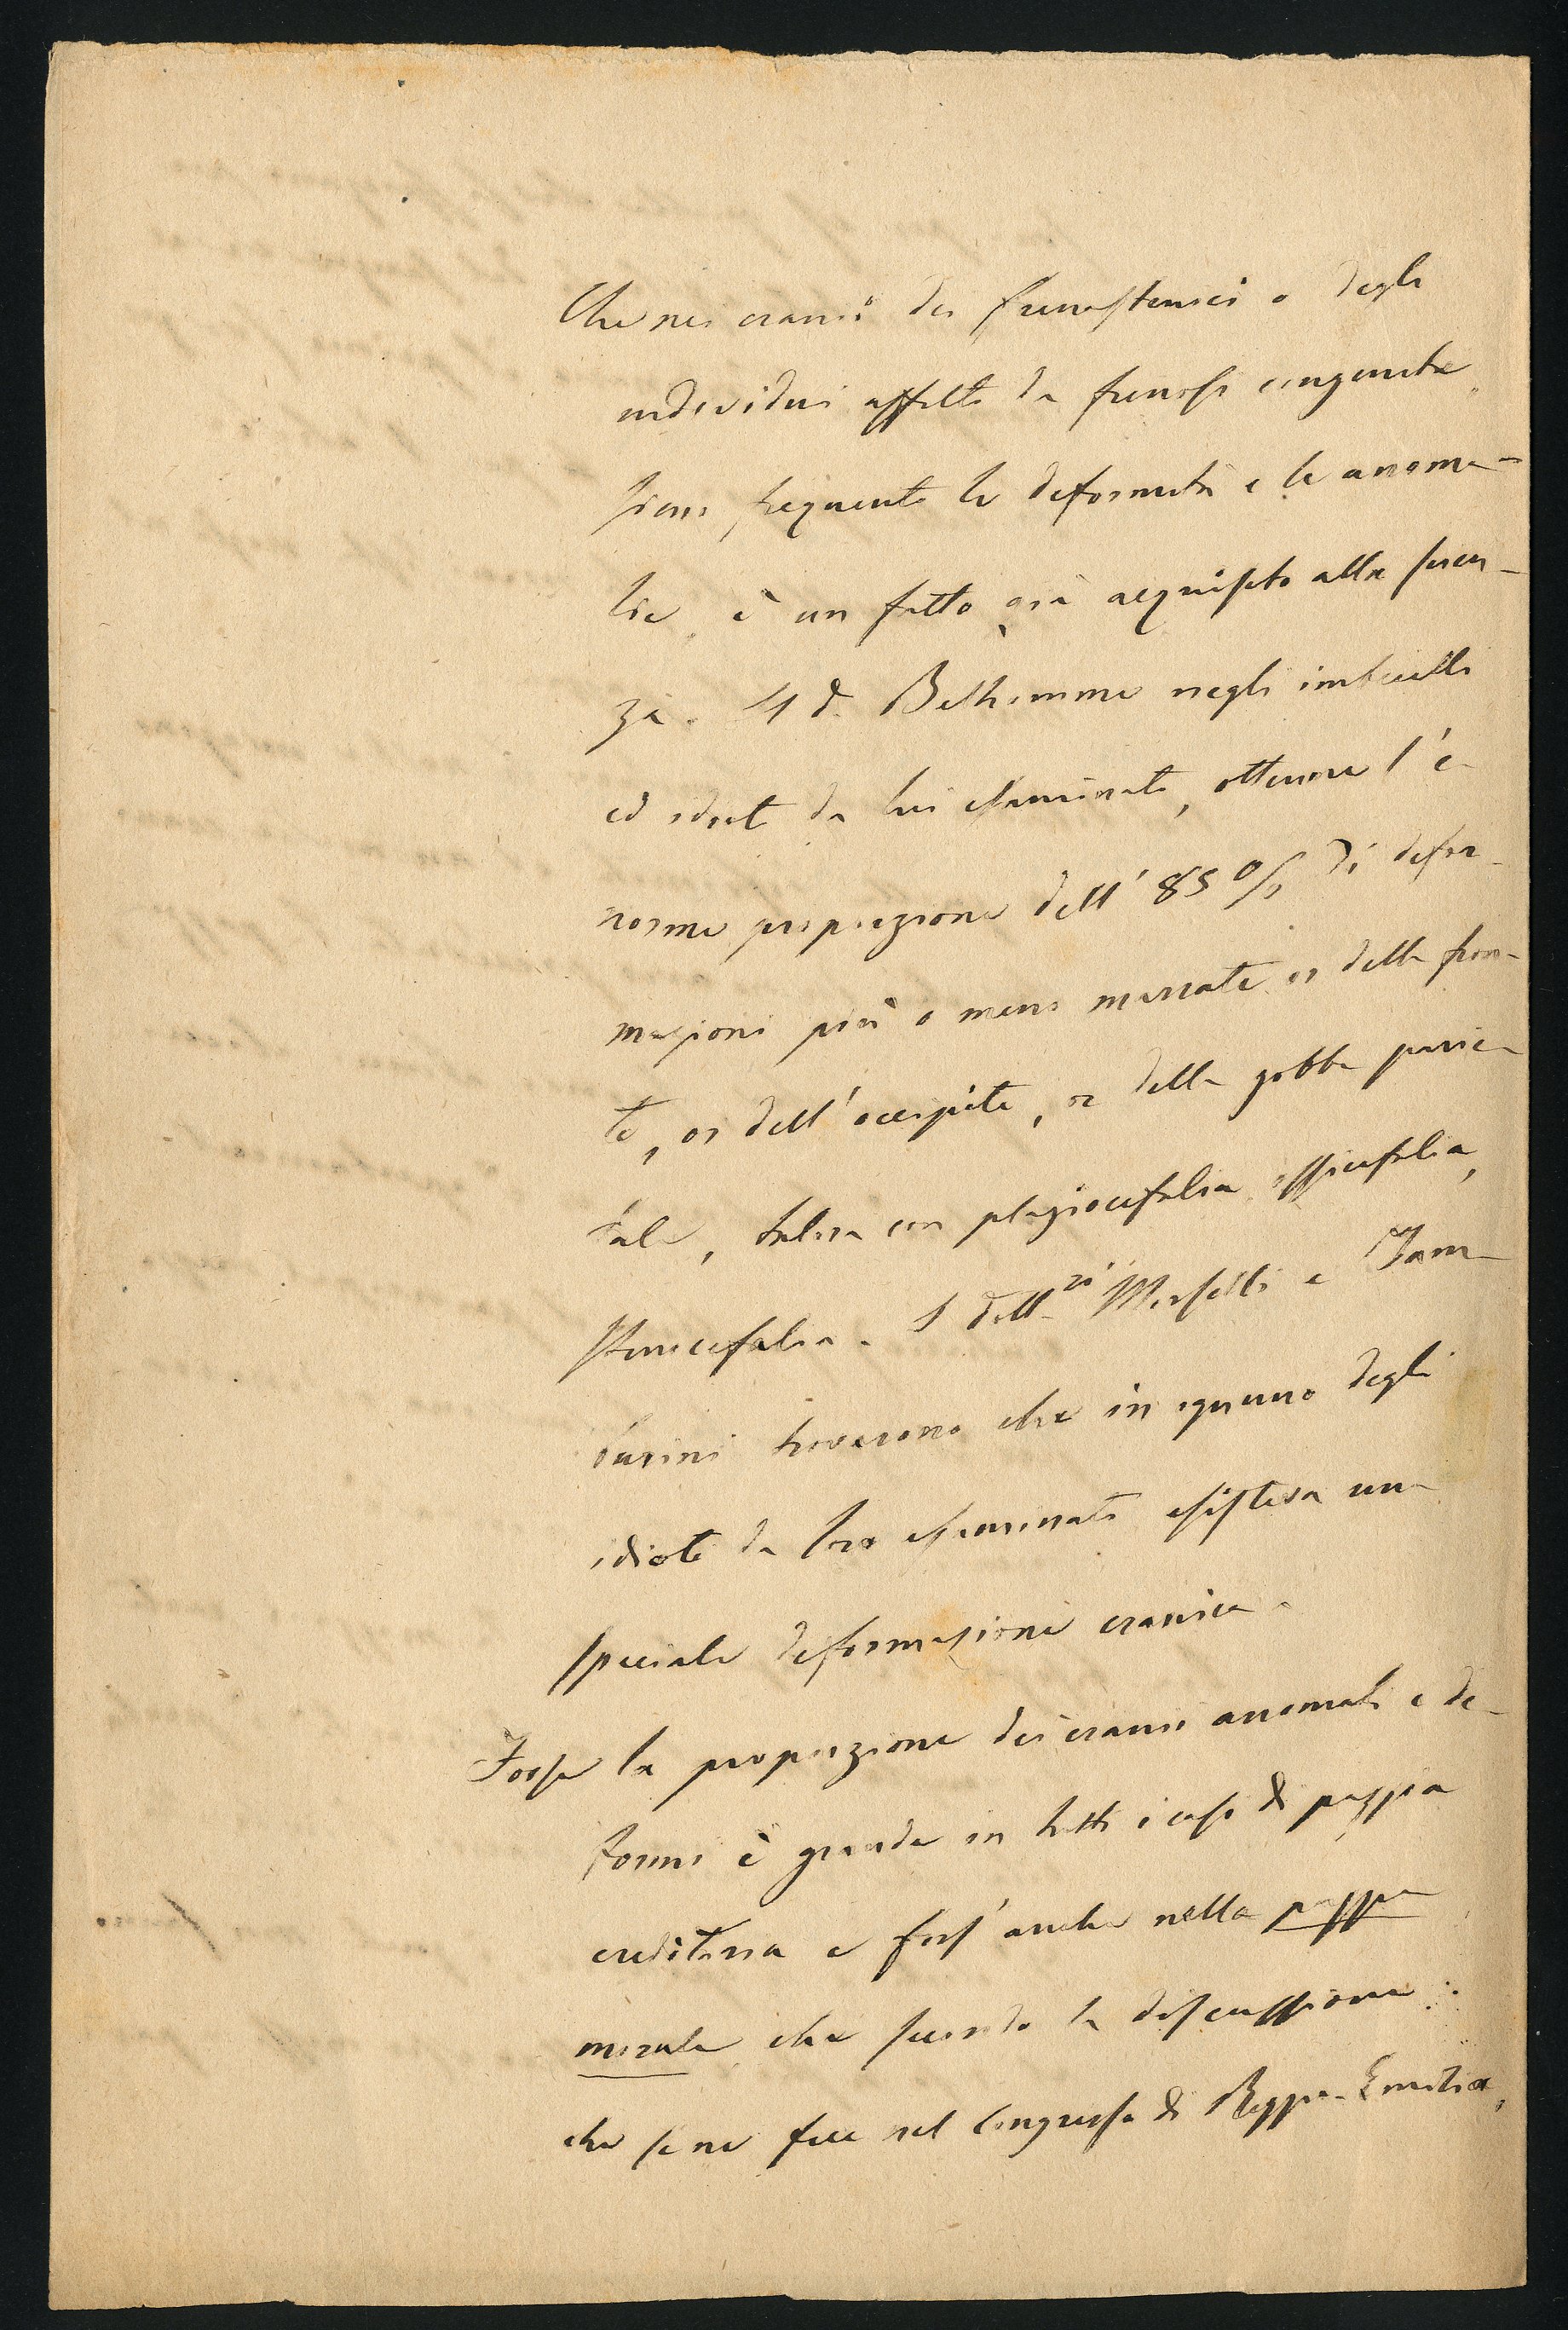 Che nei cranii dei frenastenici o degli
individui affetti da frenosi congenita
siano frequenti le deformità e le anoma-
lie è un fatto già acquisito alla scien-
za. Il d. Belhomme negli imbecilli
ed idioti da lui esaminati, ottenne l'e-
norme proporzione dell' 85 % di defor-
mazioni più o meno marcate or della fron-
te, or dell'occipite, or della gobba parie-
tale, talora con plagiocefalia, ossicefalia,
stenocefalia. I dott.ri Morselli e Tam-
burini trovarono che in ognuno degli
idioti da loro esaminati esisteva una
speciale deformazione cranica.
Forse la proporzione dei cranii anomali e de-
formi è grande in tutti i casi di pazzia
ereditaria e fors' anche nella pazzia
morale che secondo la discussione
che se ne fece nel Congresso di Reggio-Emilia,